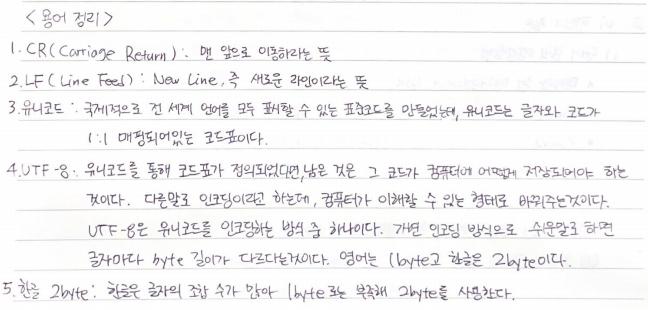 <용어 정리>
1. CR(Carriage Return): 맨 앞으로 이동하라는 뜻
2. LF(Line Feed): New Line, 즉 새로운 라인이라는 뜻
3. 유니코드: 국제적으로 전 세계 언어를 모두 표시할 수 있는 표준코드를 만들었는데, 유니코드는 글자와 코드가
1:1 매핑되어있는 코드표이다.
4. UTF-8: 유니코드를 통해 코드표가 정의되었다면, 남은 것은 그 코드가 컴퓨터에 어떻게 저장되어야 하는
것이다. 다른말로 인코딩이라고 하는데, 컴퓨터가 이해할 수 있는 형태로 바꿔주는것이다.
UTF-8은 유니코드를 인코딩하는 방식 중 하나이다. 가변 인코딩 방식으로 쉬운말로 하면
글자마다 byte 길이가 다르다는것이다. 영어는 1byte고 한글은 2byte이다.
5. 한글 2byte: 한글은 글자의 조합 수가 많아 1byte로는 부족해 2byte를 사용한다.